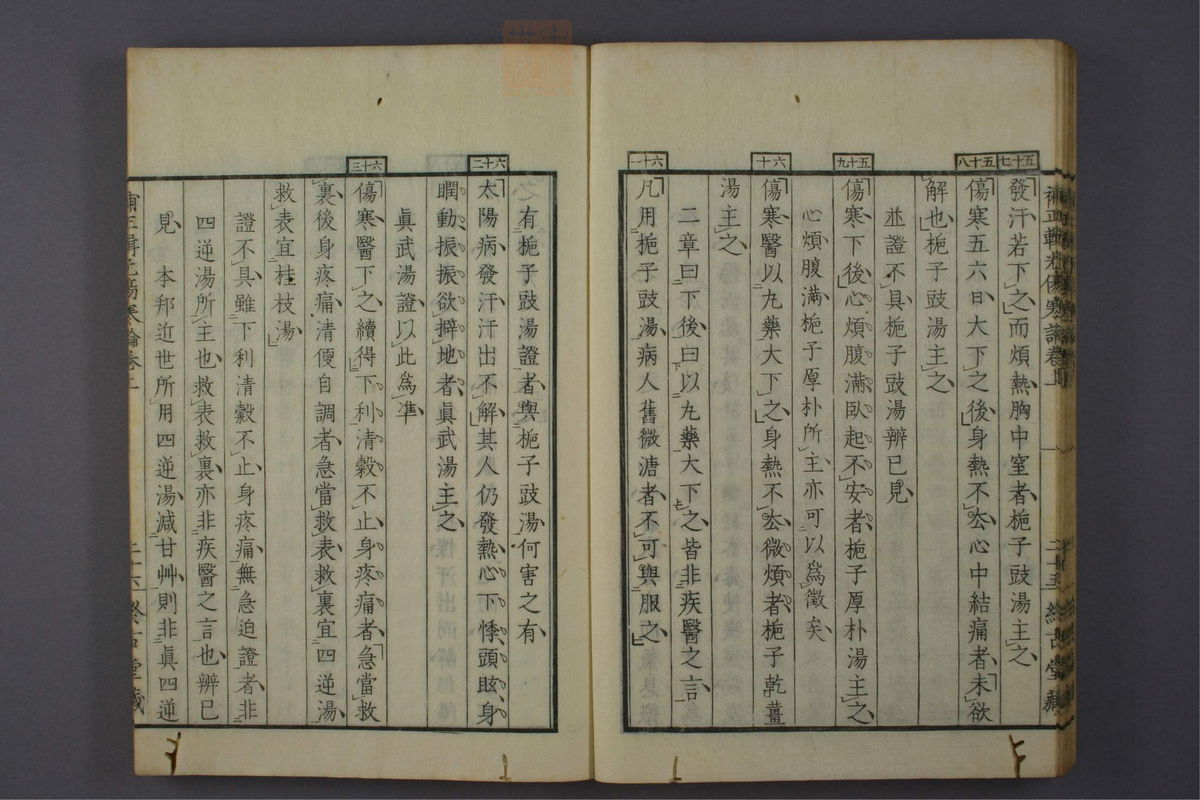 五十七
發汗若下之而煩熱胸中窒者梔子豉湯主之
五十八
傷寒五六日大下之後身熱不厺心中結痛者未欲
解也梔子豉湯主之
並證不具梔子豉湯辨已見
五十九
傷寒下後心煩腹滿臥起不安者梔子厚朴湯主之
心煩腹滿梔子厚朴所主亦可以爲徵矣
六十
傷寒醫以丸藥大下之身熱不厺微煩者梔子乾薑
湯主之
二章曰下後曰以丸藥大下之皆非疾醫之言
六十一
凡用梔子豉湯病人舊微溏者不可與服之
之有梔子豉湯證者與梔子豉湯何害之有
六十二
太陽病發汗汗出不解其人仍發熱心下悸頭眩身
瞤動振振欲擗地者眞武湯主之
眞武湯證以此爲準
六十三
傷寒醫下之續得下利清穀不止身疼痛者急當救
裏後身疼痛清便自調者急當救表救裏宜四逆湯
救表宜桂枝湯
證不具雖下利清穀不止身疼痛無急迫證者非
四逆湯所主也救表救裏亦非疾醫之言也辨已
見 本邦近世所用四逆湯減甘艸則非眞四逆
二十六